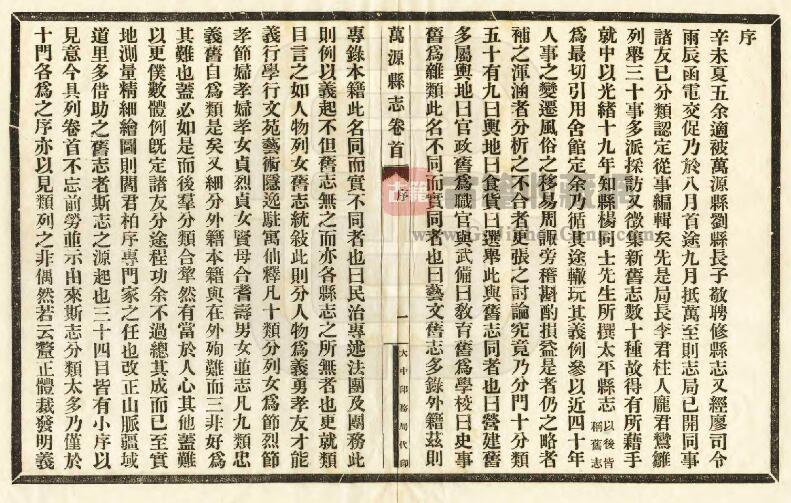 序
辛未夏五余適被萬源縣劉縣長子敬聘修縣志又經廖司令
雨辰函電交促乃於八月首途九月抵萬至則志局已開同事
諸友已分類認定從事編輯矣先是局長李君柱人龐君鸞雛
列舉三十事多派採訪又徵集新舊志數十種故得有所藉手
就中以光緒十九年知縣楊同士先生所撰太平縣志以後皆稱舊志
爲最切引用舍館定余乃循其途轍玩其義例參以近四十年
人事之變遷風俗之移易周諏旁稽斟酌損益是者仍之略者
補之渾涵者分析之不合者更張之討論究竟乃分門十分類
五十有九曰輿地曰食貨曰選舉此與舊志同者也曰營建舊
多屬輿地曰官政舊爲職官與武備曰教育舊爲學校曰史事
舊爲雜類此名不同而實同者也曰藝文舊志多錄外籍茲則
萬源縣志卷首
序
一
大中印務局代印
專錄本籍此名同而實不同者也曰民治專述法團及團務此
則例以義起不但舊志無之而亦各縣志之所無者也更就類
目言之如人物列女舊志統敍此則分人物爲義勇孝友才能
義行學行文苑藝術隱逸駐寓仙釋凡十類分列女爲節烈節
孝節婦孝婦孝女貞烈貞女賢母合耆壽男女並志凡九類忠
義舊自爲類是矣又細分外籍本籍與在外殉難而三非好爲
其難也蓋必如是而後羣分類合犖然有當於人心其他蓋難
以更僕數體例旣定諸友分途程功余不過總其成而已至實
地測量精細繪圖則閻君柏序專門家之任也改正山脈疆域
道里多借助之舊志者斯志之源起也三十四目皆有小序以
見意今具列卷首不忘前勞並示由來斯志分類太多乃僅於
十門各爲之序亦以見類列之非偶然若云釐正體裁發明義
古籍收藏網